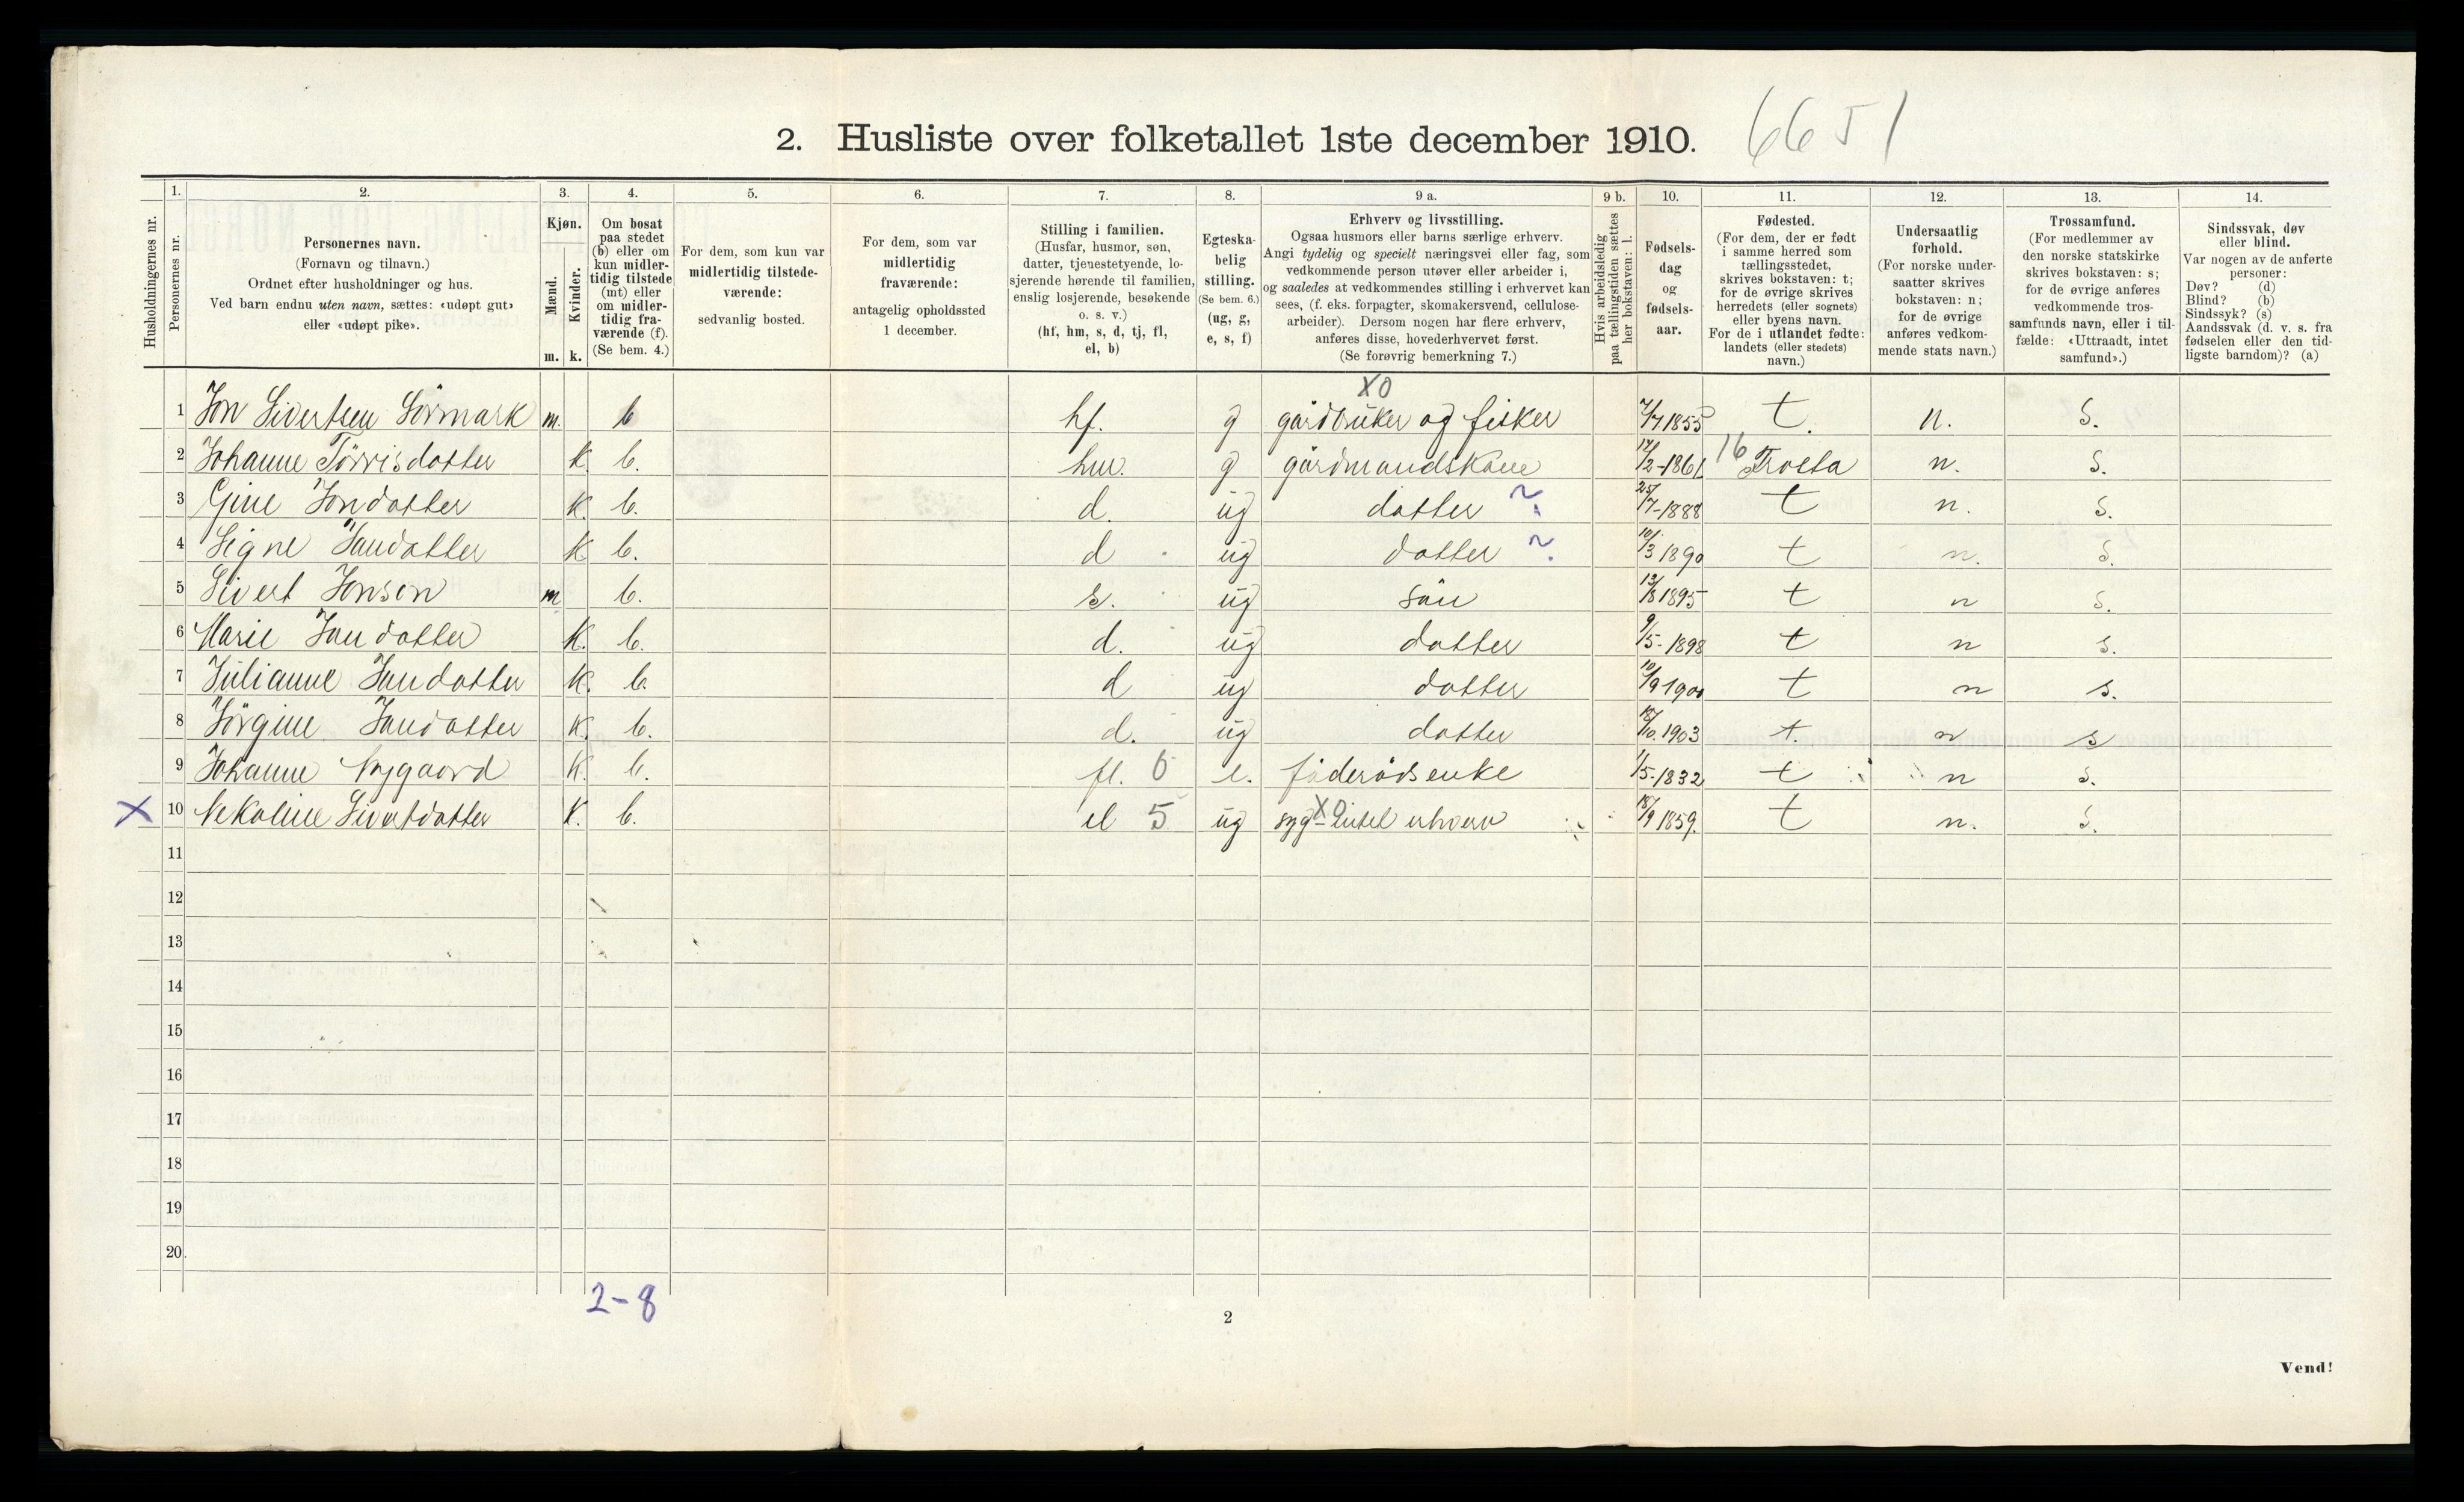 2. Husliste over folketallet 1ste december 1910. 6651
Husholdningernes nr.
1. Personernes nr.
2. Personernes navn.
(Fornavn og tilnavn.)
Ordnet efter husholdninger og hus.
Ved barn endnu uten navn, sættes: «udøpt gut»
eller «udøpt pike».
3. Kjøn.
Mænd. Kvinder.
m. k.
4. Om bosat
paa stedet
(b) eller om
kun midler-
tidig tilstede
(mt) eller
om midler-
tidig fra-
værende (f).
(Se bem. 4.)
5. For dem, som kun var
midlertidig tilstede-
værende:
sedvanlig bosted.
6. For dem, som var
midlertidig
fraværende:
antagelig opholdssted
1 december.
7. Stilling i familien.
(Husfar, husmor, søn,
datter, tjenestetyende, lo-
sjerende hørende til familien,
enslig losjerende, besøkende
o. s. v.)
(hf, hm, s, d, tj, fl,
el, b)
8. Egteska-
belig
stilling.
(Se bem. 6.)
(ug, g,
e, s, f)
9 a. Erhverv og livsstilling.
Ogsaa husmors eller barns særlige erhverv.
Angi tydelig og specielt næringsvei eller fag, som
vedkommende person utøver eller arbeider i,
og saaledes at vedkommendes stilling i erhvervet kan
sees, (f. eks. forpagter, skomakersvend, cellulose-
arbeider). Dersom nogen har flere erhverv,
anføres disse, hovederhvervet først.
(Se forøvrig bemerkning 7.)
9 b. Hvis arbeidsledig
paa tællingstiden sættes
her bokstaven: l.
10. Fødsels-
dag
og
fødsels-
aar.
11. Fødested.
(For dem, der er født
i samme herred som
tællingsstedet,
skrives bokstaven: t;
for de øvrige skrives
herredets (eller sognets)
eller byens navn.
For de i utlandet fødte:
landets (eller stedets)
navn.)
12. Undersaatlig
forhold.
(For norske under-
saatter skrives
bokstaven: n;
for de øvrige
anføres vedkom-
mende stats navn.)
13. Trossamfund.
(For medlemmer av
den norske statskirke
skrives bokstaven: s;
for de øvrige anføres
vedkommende tros-
samfunds navn, eller i til-
fælde: «Uttraadt, intet
samfund».)
14. Sindssvak, døv
eller blind.
Var nogen av de anførte
personer:
Døv? (d)
Blind? (b)
Sindssyk? (s)
Aandssvak (d. v. s. fra
fødselen eller den tid-
ligste barndom)? (a)
XO
1 Jon Sivertsen Sörmark m. b hf. g gårdbruker og fisker 7/7 1855 t. n. S.
2 Johanne Törrisdatter K. b. hm. g gårdmandskone 17/2-1861 16 Frosta n. S.
3 Gine Jondatter K. b. d. ug datter ~ 25/7-1888 t n. S.
4 Signe Jondatter K b. d ug datter ~ 10/3 1890 t n. S.
5 Sivert Jonsen m b. s. ug sön 13/8 1895 t n S.
6 Marie Jondatter K. b. d. ug datter 9/5-1898 t n s.
7 Julianne Jondatter K. b. d ug datter 10/9 1900 t n s.
8 Jörgine Jondatter K. b. d. ug datter 18/10.1903 t. n s
9 Johanne Nygaard K. b. fl. 6 e. föderådsenke 1/5-1832 t n S.
X 10 Nekoline Sivertdatter K. b. el 5 ug syg - XO intet erhverv 18/9 1859. t n. S.
11
12
13
14
15
16
17
18
19
20
2-8
2
Vend!